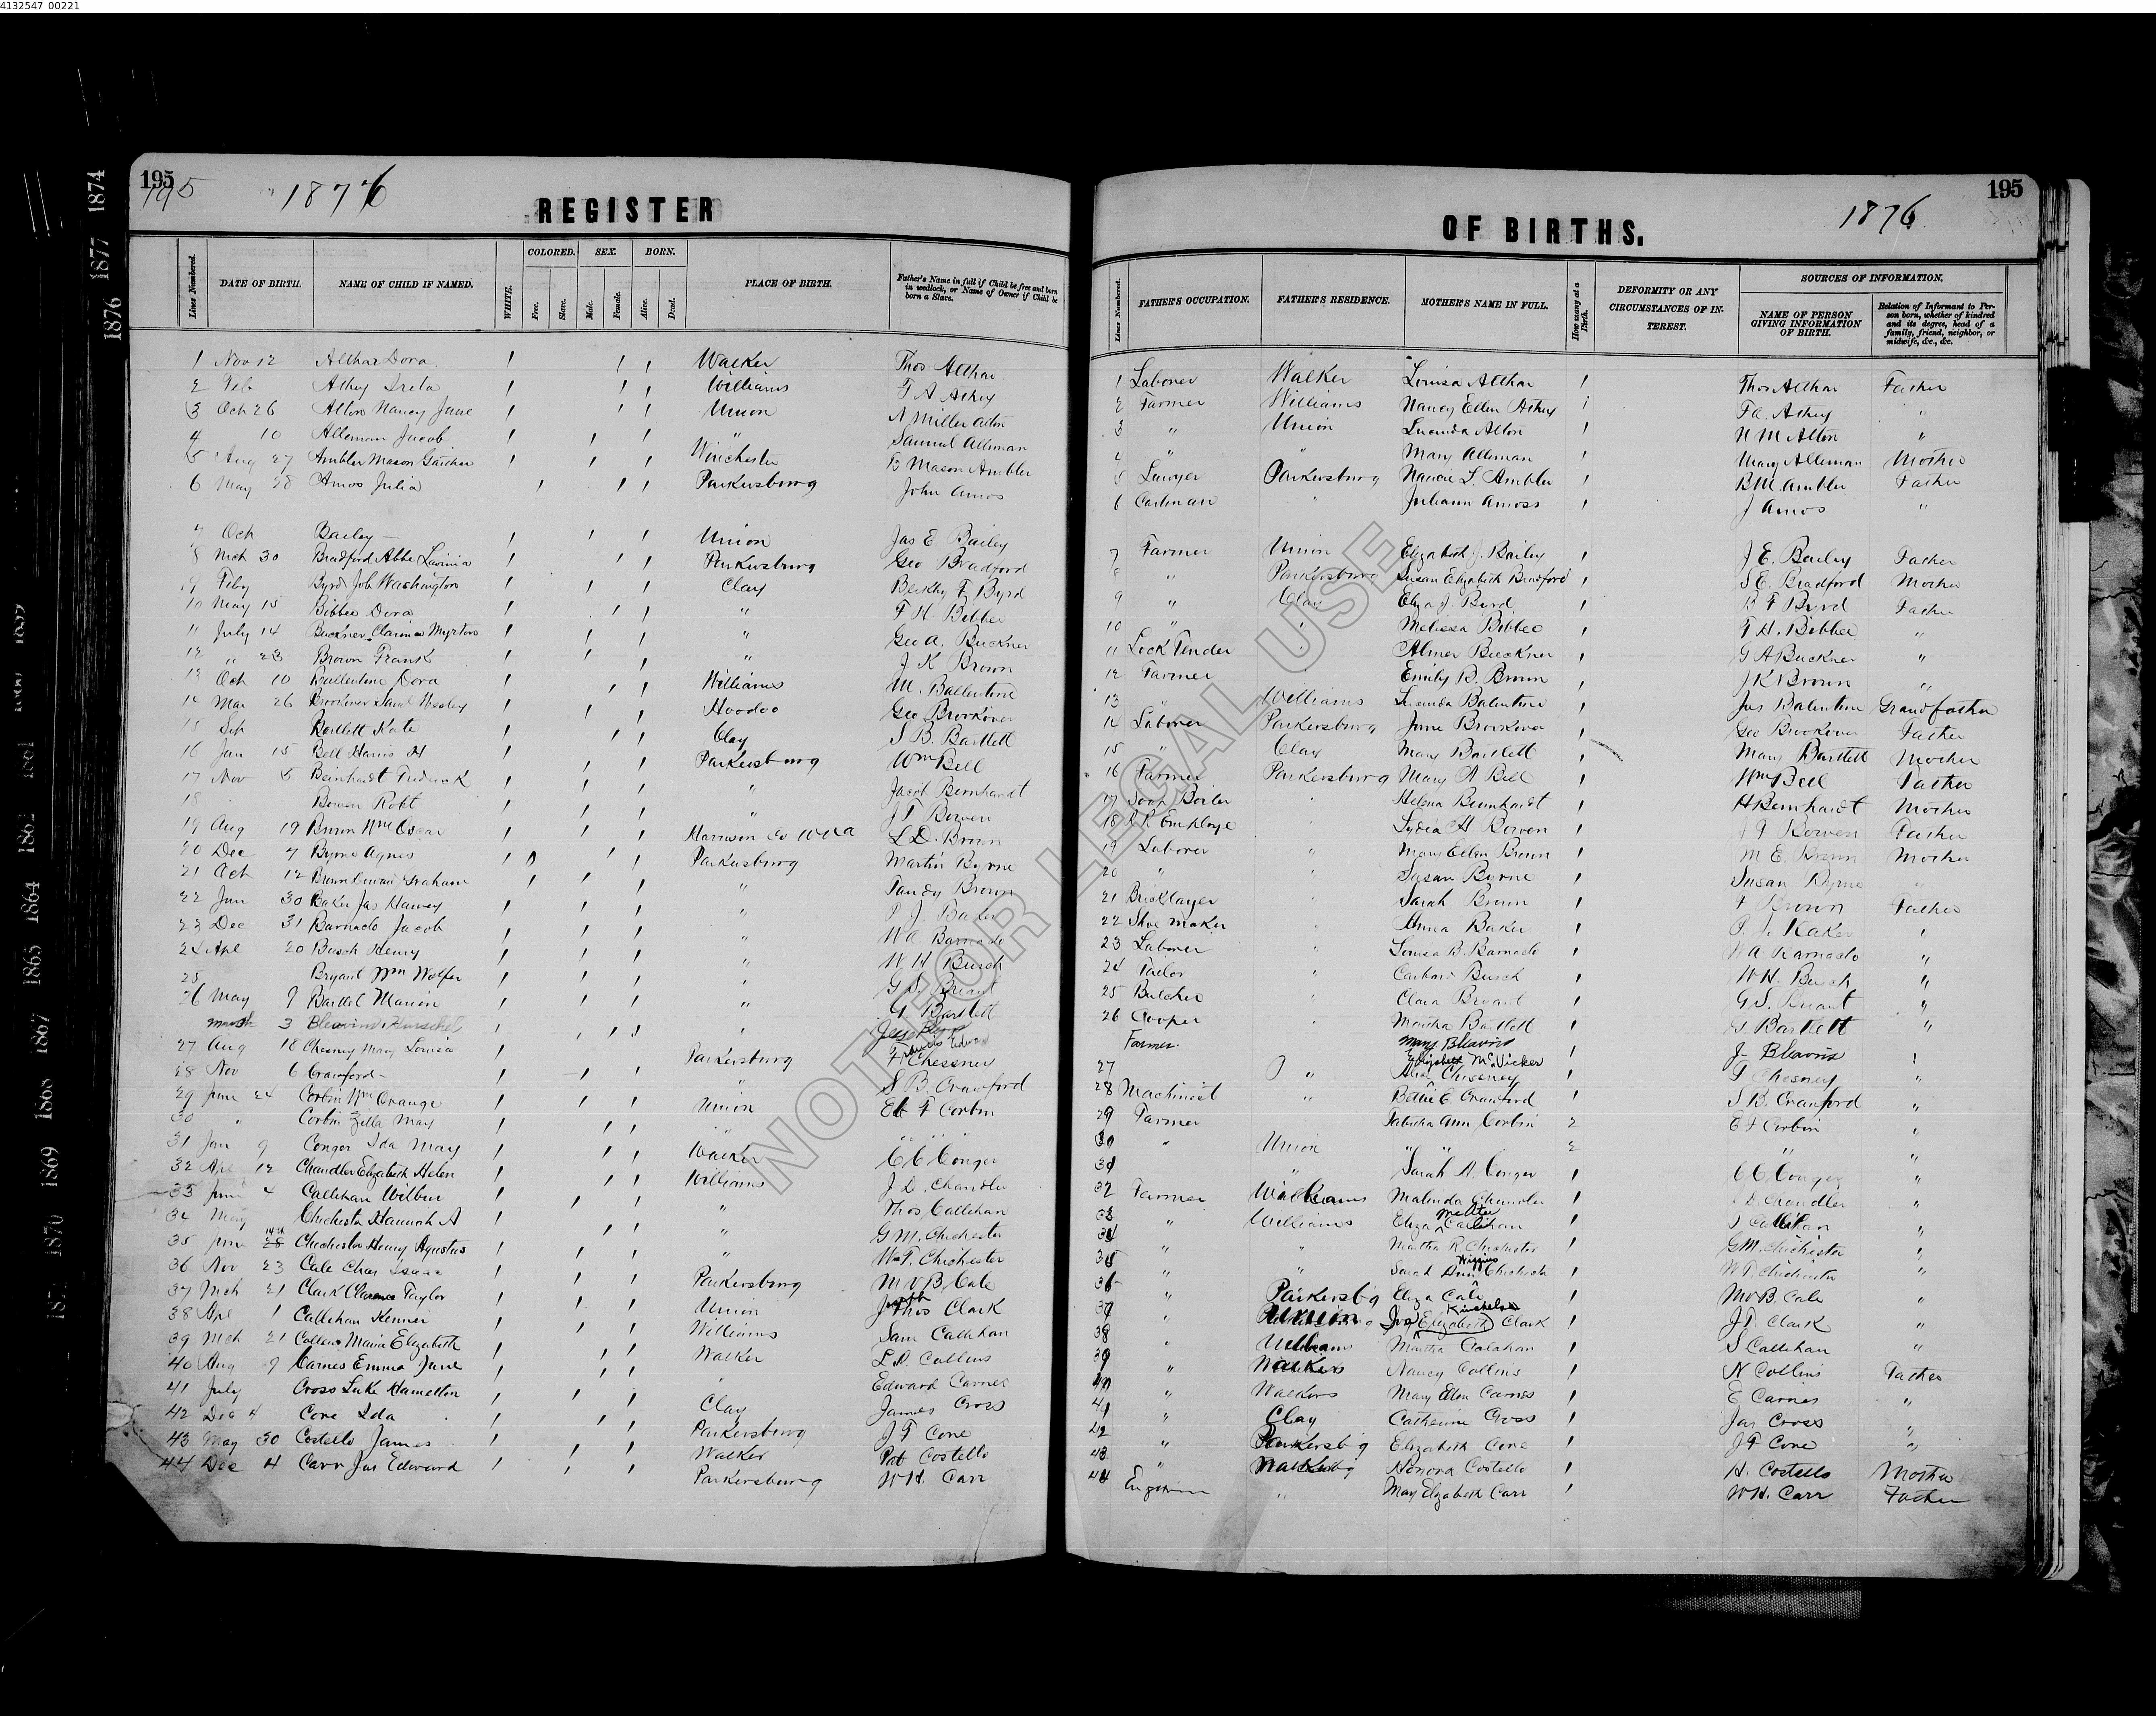 4132547_00221
195
195
1876
REGISTER
Lines Numbered.
DATE OF BIRTH.
NAME OF CHILD IF NAMED.
WHITE.
COLORED.
Free.
Slave.
SEX.
Male.
Female.
BORN.
Alive.
Dead.
PLACE OF BIRTH.
Father's Name in full if Child be free and born in wedlock, or Name of Owner if Child be born a Slave.
1 Nov 12 Althar Dora Walker Thos Althar
2 Feb Athey Walker Williams F A Athey
3 Oct 26 Alton Nancy Jane Union N Miller Alton
4 10 Alleman Jacob " Samuel Alleman
5 Aug 27 Ambler Mason Gaither Winchester B Mason Ambler
6 May 28 Amos Julia Parkersburg John Amos
7 Oct Bailey — Union Jas E Bailey
8 Mch 30 Bradford Abbe Lavinia Parkersburg Geo Bradford
9 Feby Byrd Job Washington Clay F Byrd
10 May 15 Bibbee Dora " F H. Bibbee
11 July 14 Buckner " Geo A. Buckner
12 " 23 Brown Frank " J K Brown
13 Oct 10 Ballentine Dora Williams M. Ballentine
14 Mar 26 Brookover Saml Wesley Hoodoo Geo Brookover
15 Sep Bartlett Kate Clay S B. Bartlett
16 Jan 15 Bell Harris H Parkersburg Wm Bell
17 Nov 5 Beinhardt Frederick " Jacob Bernhardt
18 Bowen Robt " J T Bowen
19 Aug 19 Brown Wm Oscar Harrison Co W Va L D. Brown
20 Dec 7 Byrne Agnes Parkersburg Martin Byrne
21 Oct 12 Brown Graham " Tandy Brown
22 Jun 30 Baker Jas Harvey " P. J. Baker
23 Dec 31 Barnado Jacob " W A Barnado
24 Apl 20 Busch Henry " W H Busch
25 Bryant Wm " G S. Briant
26 May 9 Bartlet Marion " G Bartlett
March 3 Bleavins Herschel "
27 Aug 18 Chesney Mary Louisa Parkersburg F Chessney
28 Nov 6 Crawford - " S B. Crawford
29 June 24 Corbin Wm Orange Union Eb F Corbin
30 " Corbin Zella May " " " "
31 Jan 9 Conger Ida May Walker C C Conger
32 Apl 12 Chandler Elizabeth Helen Williams J D. Chandler
33 June 4 Callihan Wilbur " Thos Callihan
34 May Chichester Hannah A " G M. Chichester
35 June 14th 28 Chichester Henry Agustus " W T. Chichester
36 Nov 23 Cale Chas Isaac Parkersburg M V B Cale
37 Mch 21 Clark Clarence Taylor Union Joseph Thos Clark
38 Apl 1 Callihan Kenner Williams Sam Callihan
39 Mch 21 Collens Maria Elizabeth Walker L D. Collins
40 Aug 9 Carnes Emma Jane " Edward Carnes
41 July Cross Luke Hamelton Clay James Cross
42 Dec 4 Cone Ida Parkersburg J F Cone
43 May 30 Costello James Walker Pat Costello
44 Dec 4 Carr Jas Edward Parkersburg W H. Carr
195
1876
OF BIRTHS.
Lines Numbered.
FATHER'S OCCUPATION.
FATHER'S RESIDENCE.
MOTHER'S NAME IN FULL.
How many at a Birth.
DEFORMITY OR ANY CIRCUMSTANCES OF INTEREST.
SOURCES OF INFORMATION.
NAME OF PERSON GIVING INFORMATION OF BIRTH.
Relation of Informant to Person born, whether of kindred and its degree, head of a family, friend, neighbor, or midwife, &c., &c.
1 Laborer Walker Louisa Althar 1 Thos Althar Father
2 Farmer Williams Nancy Ellen Athey 1 F A. Athey "
3 " Union Lucinda Alton 1 N M Alton "
4 " " Mary Alleman 1 Mary Alleman Mother
5 Lawyer Parkersburg Nancie L. Ambler 1 B M. Ambler Father
6 Cartman " Juliann Amoss 1 J Amos "
7 Farmer Union Elizabeth J. Bailey 1 J E. Bailey Father
8 " Parkersburg Susan Elizabeth Bradford 1 S E. Bradford Mother
9 " Clay Eliza J. Byrd 1 B F Byrd Father
10 " " Melissa Bibbee 1 F H. Bibbee "
11 Lock Tender " Almer Buckner 1 G A Buckner "
12 Farmer " Emily B. Brown 1 J K Brown "
13 " Williams Lucinda Balentine 1 Jas Balentine Grandfather
14 Laborer Parkersburg Jane Brookover 1 Geo Brookover Father
15 " Clay Mary Bartlett 1 Mary Bartlett Mother
16 Farmer Parkersburg Mary A Bell 1 Wm Bell Father
17 Soap Boiler " Helena Bernhardt 1 H Bernhardt Mother
18 R R Employe " Lydia H. Bowen 1 J T Bowen Father
19 Laborer " Mary Ellen Brown 1 M E. Brown Mother
20 " " Susan Byrne 1 Susan Byrne "
21 Bricklayer " Sarah Brown 1 T Brown Father
22 Shoe maker " Anna Baker 1 P. J. Baker "
23 Laborer " Louisa B. Barnado 1 W A Barnado "
24 Tailor " Busch 1 W H. Busch "
25 Butcher " Clara Bryant 1 G. S. Briant "
26 Cooper " Martha Bartlett 1 G Bartlett "
Farmer. Mary Bleavins J. Bleavins
27 " Elizabeth McVicker Chesney 1 F Chesney "
28 Machinist " Bettie C Crawford 1 S B. Crawford "
29 Farmer Tabitha Ann Corbin 2 E F Corbin "
30 " Union " " 2 " "
31 " Sarah A. Conger 1 C C Conger "
32 Farmer Williams Malinda Chandler 1 D. Chandler "
33 " Williams Eliza Callihan 1 T Callihan "
34 " " Martha R. Chichester 1 G M. Chichester "
35 " " Sarah Ann Wiggins Chichester 1 W T. Chichester "
36 " Parkersbg Eliza Cale 1 M V B. Cale "
37 " Union Elizabeth Clark 1 J T. Clark "
38 " Williams Martha Calahan 1 S Callihan "
39 " Walker Nancy Collins 1 N Collins Father
40 " Walkers Mary Ellen Carnes 1 E Carnes "
41 " Clay Catherine Cross 1 Jas Cross "
42 " Parkersbg Elizabeth Cone 1 J F Cone "
43 " Walker Honora Costello 1 H. Costello Mother
44 " May Elizabeth Carr 1 W H. Carr Father
NOT FOR LEGAL USE
1874
1877
1876
1862
1864
1865
1867
1868
1869
1870